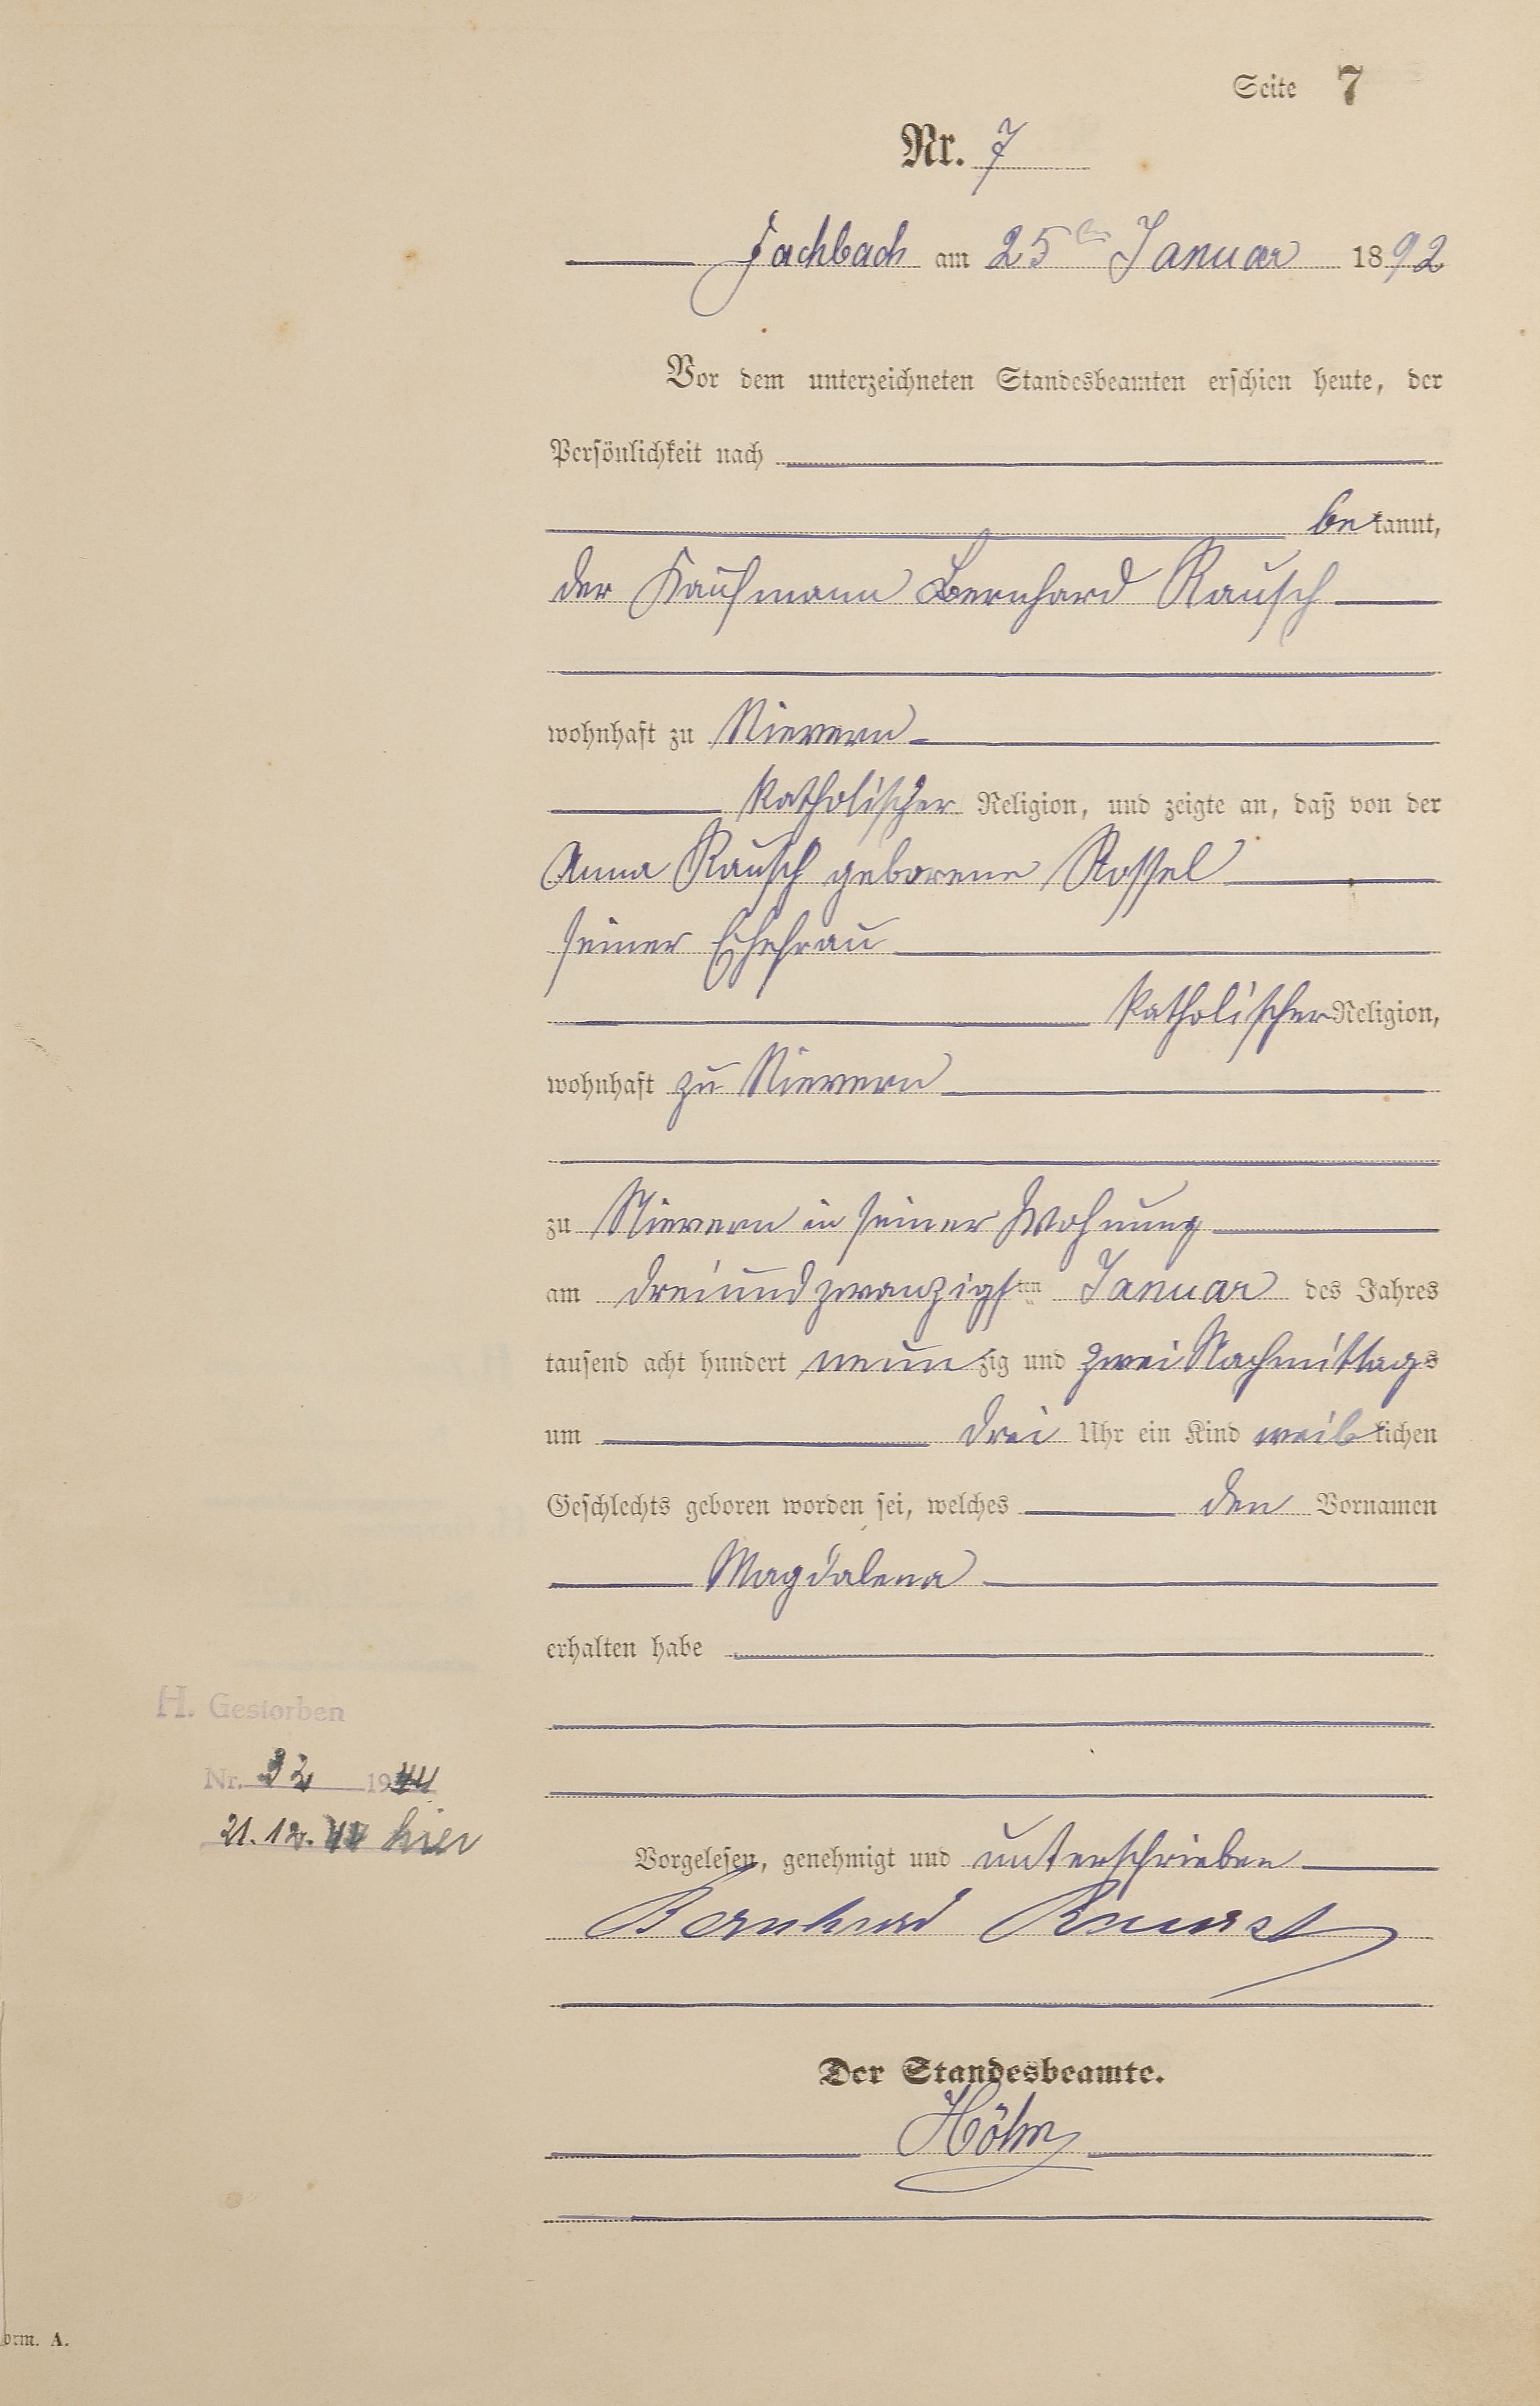 Seite 7
Nr. 7
Fachbach am 25ten Januar 1892
Vor dem unterzeichneten Standesbeamten erschien heute, der
Persönlichkeit nach
bekannt,
der Kaufmann Bernhard Rausch
wohnhaft zu Nievern
katholischer Religion, und zeigte an, daß von der
Anna Rausch geborene Rossel
seiner Ehefrau
katholischer Religion,
wohnhaft zu Nievern
zu Nievern in seiner Wohnung
am dreiundzwanzigsten Januar des Jahres
tausend acht hundert neunzig und zwei Nachmittags
um drei Uhr ein Kind weiblichen
Geschlechts geboren worden sei, welches den Vornamen
Magdalena
erhalten habe
H. Gestorben
Nr. 32 1944
21.12.44 hier
Vorgelesen, genehmigt und unterschrieben
Bernhard
Der Standesbeamte.
orm. A.